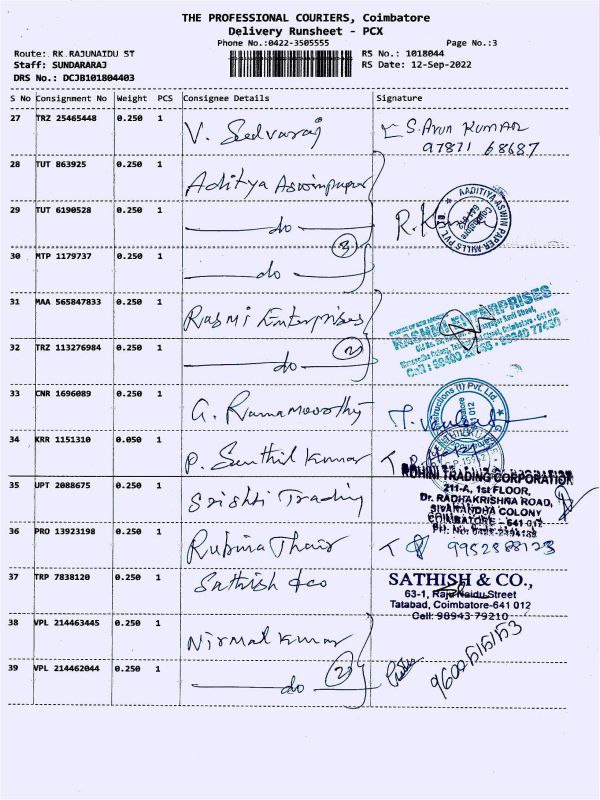 THE PROFESSIONAL COURIERS, Coimbatore
Delivery Runsheet - PCX
Phone No.:0422-3505555
Page No.:3
Route: RK.RAJUNAIDU ST
RS No.: 1018044
Staff: SUNDARARAJ
RS Date: 12-Sep-2022
DRS No.: DCJB101804403
S No Consignment No Weight PCS Consignee Details Signature
27 TRZ 25465448 0.250 1 V. Selvaraj S. Arun KUMAR
97871 68687
28 TUT 863925 0.250 1 Aditya Aswinpaper
29 TUT 6190528 0.250 1 do R. Kumar
AADITIYA ASWIN PAPER MILLS PVT. LTD.
Coimbatore
641 012
3
30 MTP 1179737 0.250 1 do
31 MAA 565847833 0.250 1 Rasmi Enterprises
RASHMI ENTERPRISES
Coimbatore - 641 012.
32 TRZ 113276984 0.250 1 do 2
33 CNR 1696089 0.250 1 G. Ramamoorthy
34 KRR 1151310 0.050 1 P. Senthil kumar
ROHINI TRADING CORPORATION
35 UPT 2088675 0.250 1 Srishti Trading
211-A, 1st FLOOR,
Dr. RADHAKRISHNA ROAD,
SIVANANDHA COLONY
COIMBATORE - 641 012
36 PRO 13923198 0.250 1 Rubina Thair
9952888123
37 TRP 7838120 0.250 1 Sathish &co
SATHISH & CO.,
63-1, Raju Naidu Street
Tatabad, Coimbatore-641 012
Cell: 98943 79210
38 VPL 214463445 0.250 1 Nirmal kumar
39 VPL 214462044 0.250 1 do 2